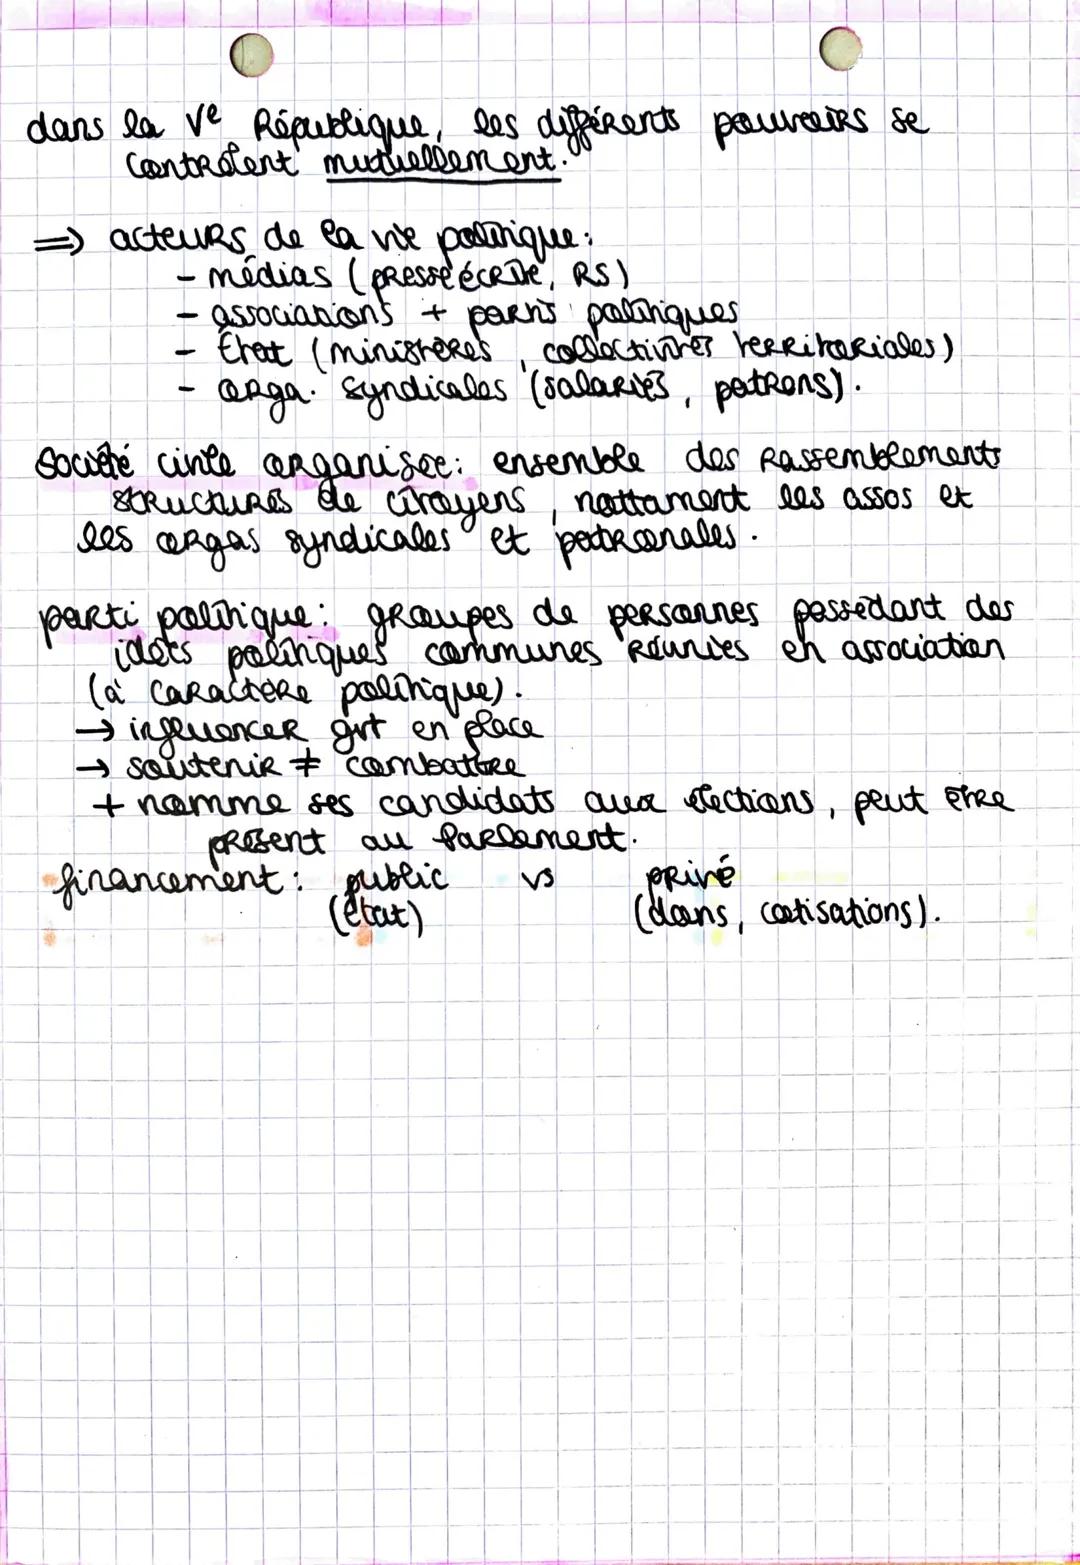 dans la Ve République, les différents pouvoirs se
contrôlent mutuellement.
=> acteurs de la vie politique :
- médias (presse écrite, RS)
- associations + partis politiques
- État (ministères, collectivités territoriales)
- orga. syndicales (salariés, patrons).
Société civile organisée : ensemble des rassemblements
structurés de citoyens, nottament les assos et
les orgas syndicales et patronales.
parti politique : groupes de personnes possédant des
idées politiques communes réunies en association
(à caractère politique).
→ influencer gvt en place
→ soutenir ≠ combattre
+ nomme ses candidats aux élections, peut être
présent au Parlement.
financement : public vs privé
(état) (dons, cotisations).